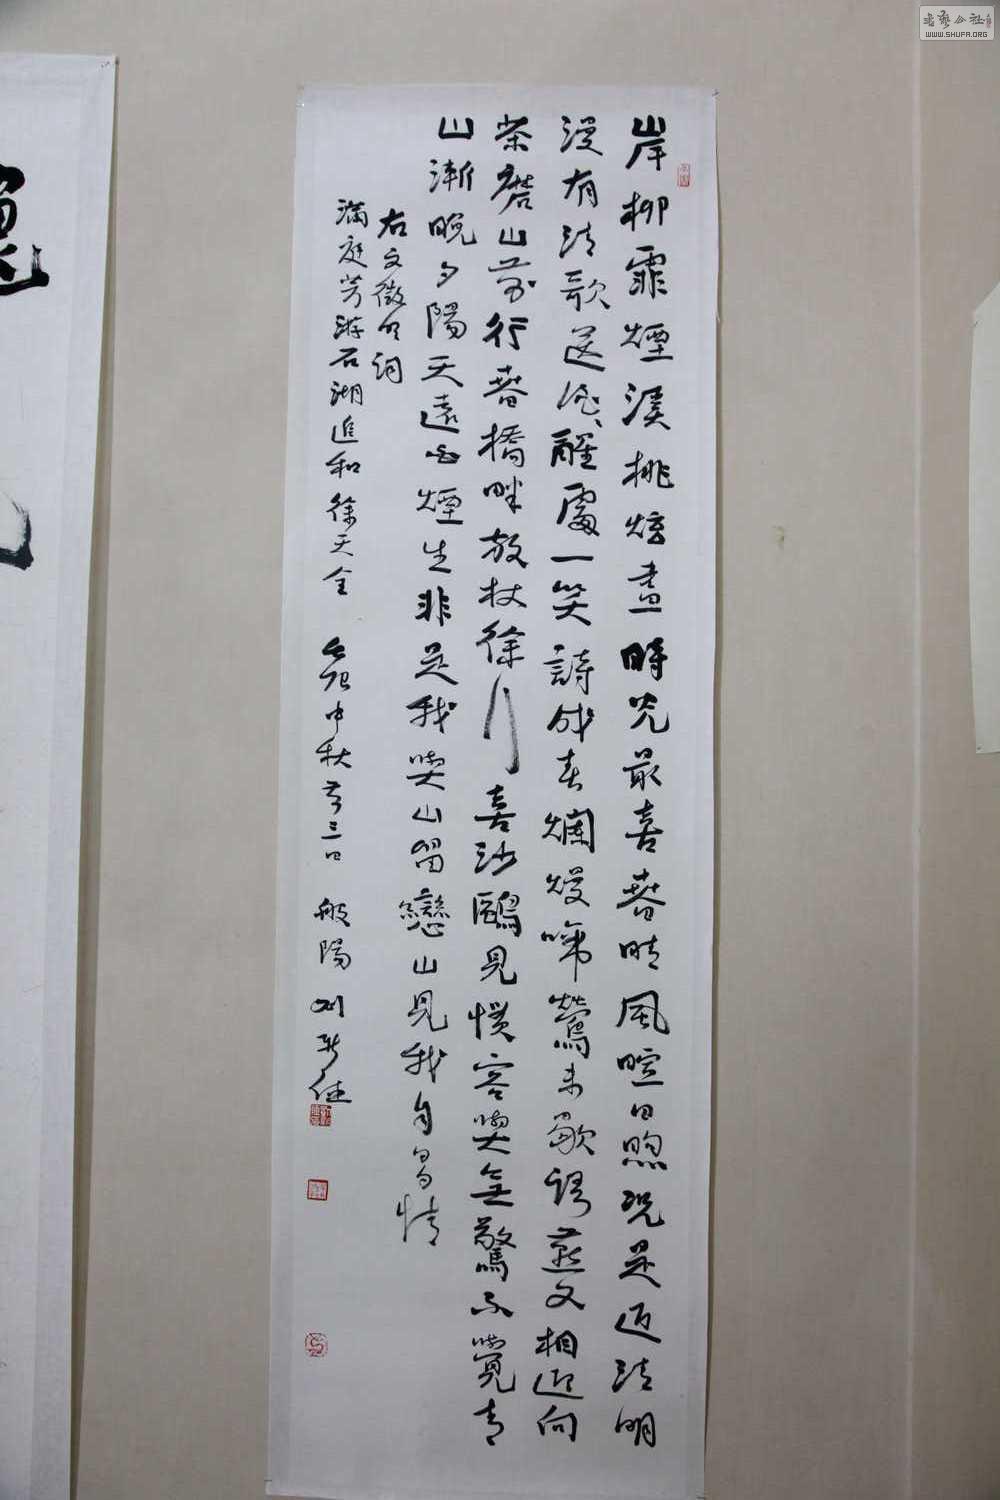 岸柳霏煙溪桃炫晝時光最喜春晴風暄日煦況是近清明
漫有清歌送酒醒處一笑詩成春爛熳啼鶯未歇語燕又相迎向
茶磨山前行春橋畔放杖徐行喜沙鷗見慣容與無驚不覺青
山漸晚夕陽天遠白煙生非是我與山留戀山見我自多情
右文徵明詞
滿庭芳游石湖追和徐天全
中秋前三日 般陽 刘新德
書藝公社
WWW.SHUFA.ORG